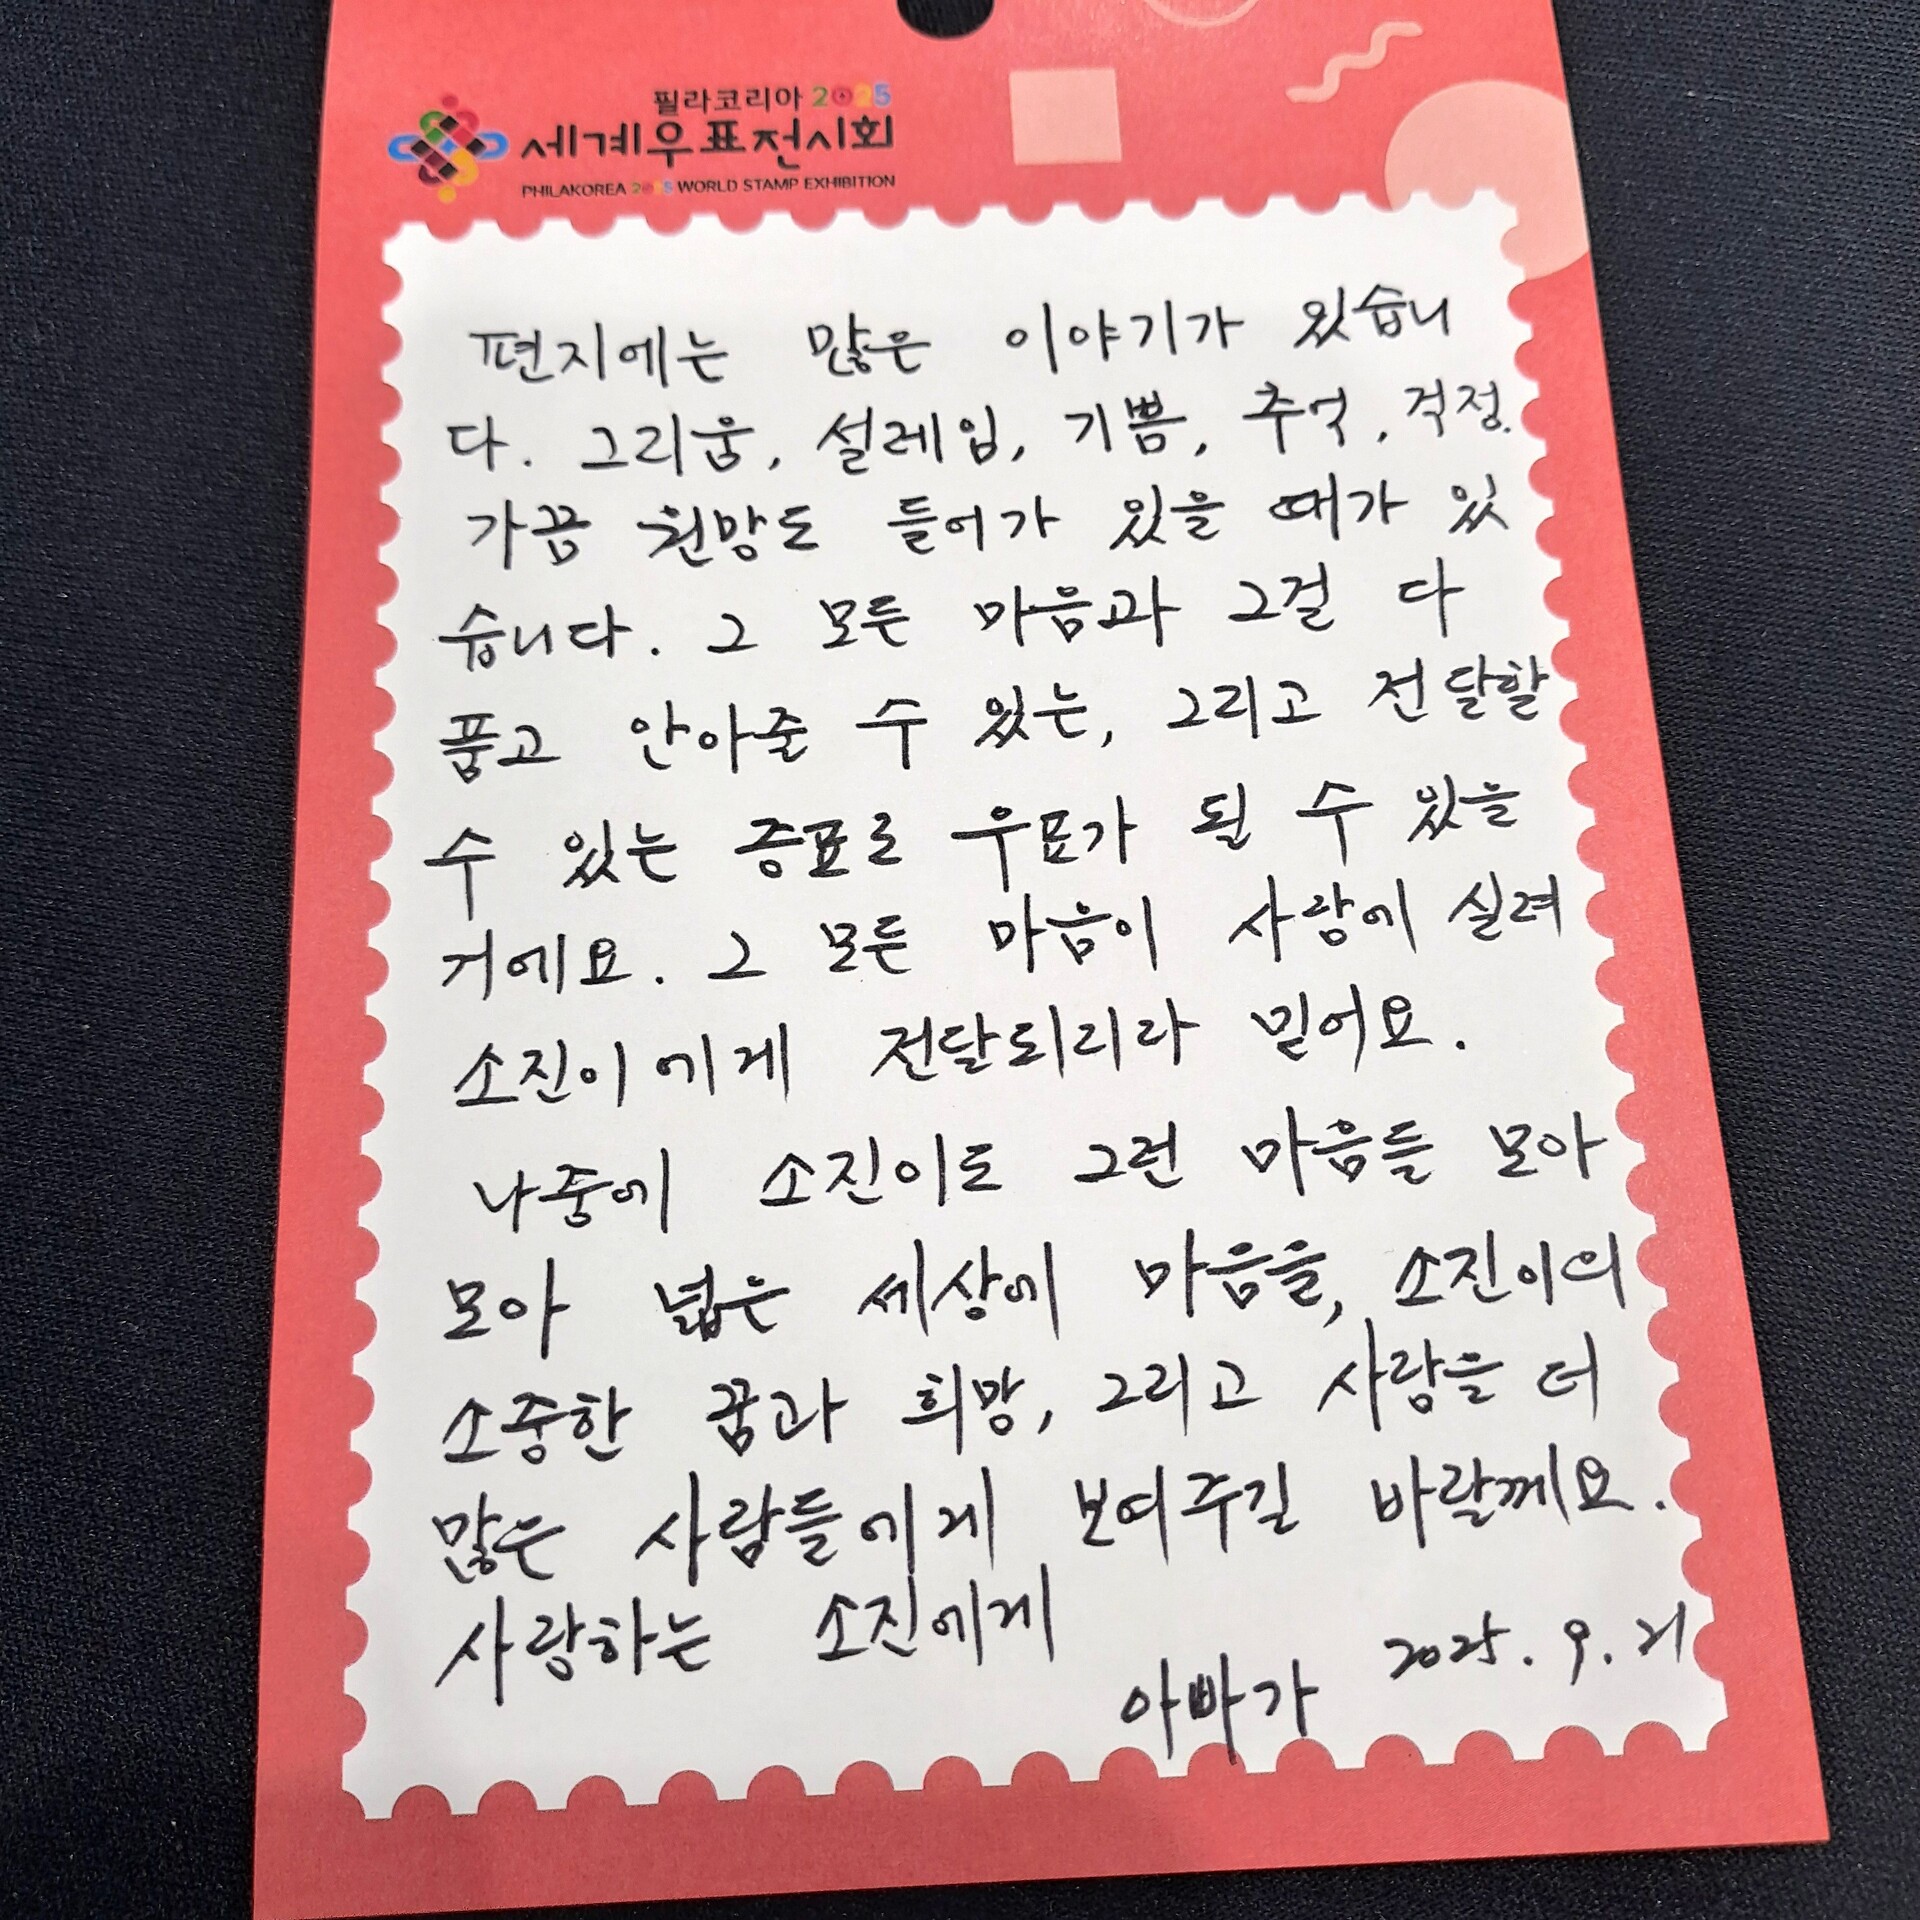 필라코리아 2025
세계우표전시회
PHILAKOREA 2025 WORLD STAMP EXHIBITION
편지에는 많은 이야기가 있습니
다. 그리움, 설레임, 기쁨, 추억, 걱정.
가끔 원망도 들어가 있을 때가 있
습니다. 그 모든 마음과 그걸 다
품고 안아줄 수 있는, 그리고 전달할
수 있는 증표로 우표가 될 수 있을
거에요. 그 모든 마음이 사랑에 실려
소진이에게 전달되리라 믿어요.
나중에 소진이도 그런 마음들 모아
모아 넓은 세상에 마음을, 소진이의
소중한 꿈과 희망, 그리고 사랑을 더
많은 사람들에게 보여주길 바랄께요.
사랑하는 소진에게
아빠가 2025. 9. 21